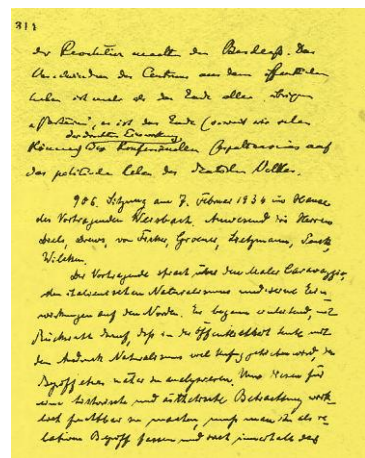 311
der Revolution machte den Beschluß. Das
Verschwinden des Centrums aus dem öffentlichen
Leben ist mehr als das Ende aller übrigen
, es ist das Ende (soweit wir sehen
der direkten Einwirkung
können) des konfessionellen auf
das politische Leben des deutschen Volkes.
906. Sitzung am 7. Februar 1934 im Hause
des Vortragenden Wiersbach. Anwesend die Herren
Diels, Drews, von Ficker, Groener, Lietzmann,
Wilcken.
Der Vortragende sprach über den Maler Caravaggio,
den italienischen Naturalismus und seine Ein-
wirkungen auf den Norden. Er begann einleitend, mit
Rücksicht darauf, daß in der Öffentlichkeit heute mit
dem Ausdruck Naturalismus viel wird, den
Begriff etwas näher zu analysieren. Um diesen für
eine historische und ästhetische Betrachtung wirk-
lich fruchtbar zu machen, muß man ihn als re-
lativen Begriff fassen und nach innerhalb des